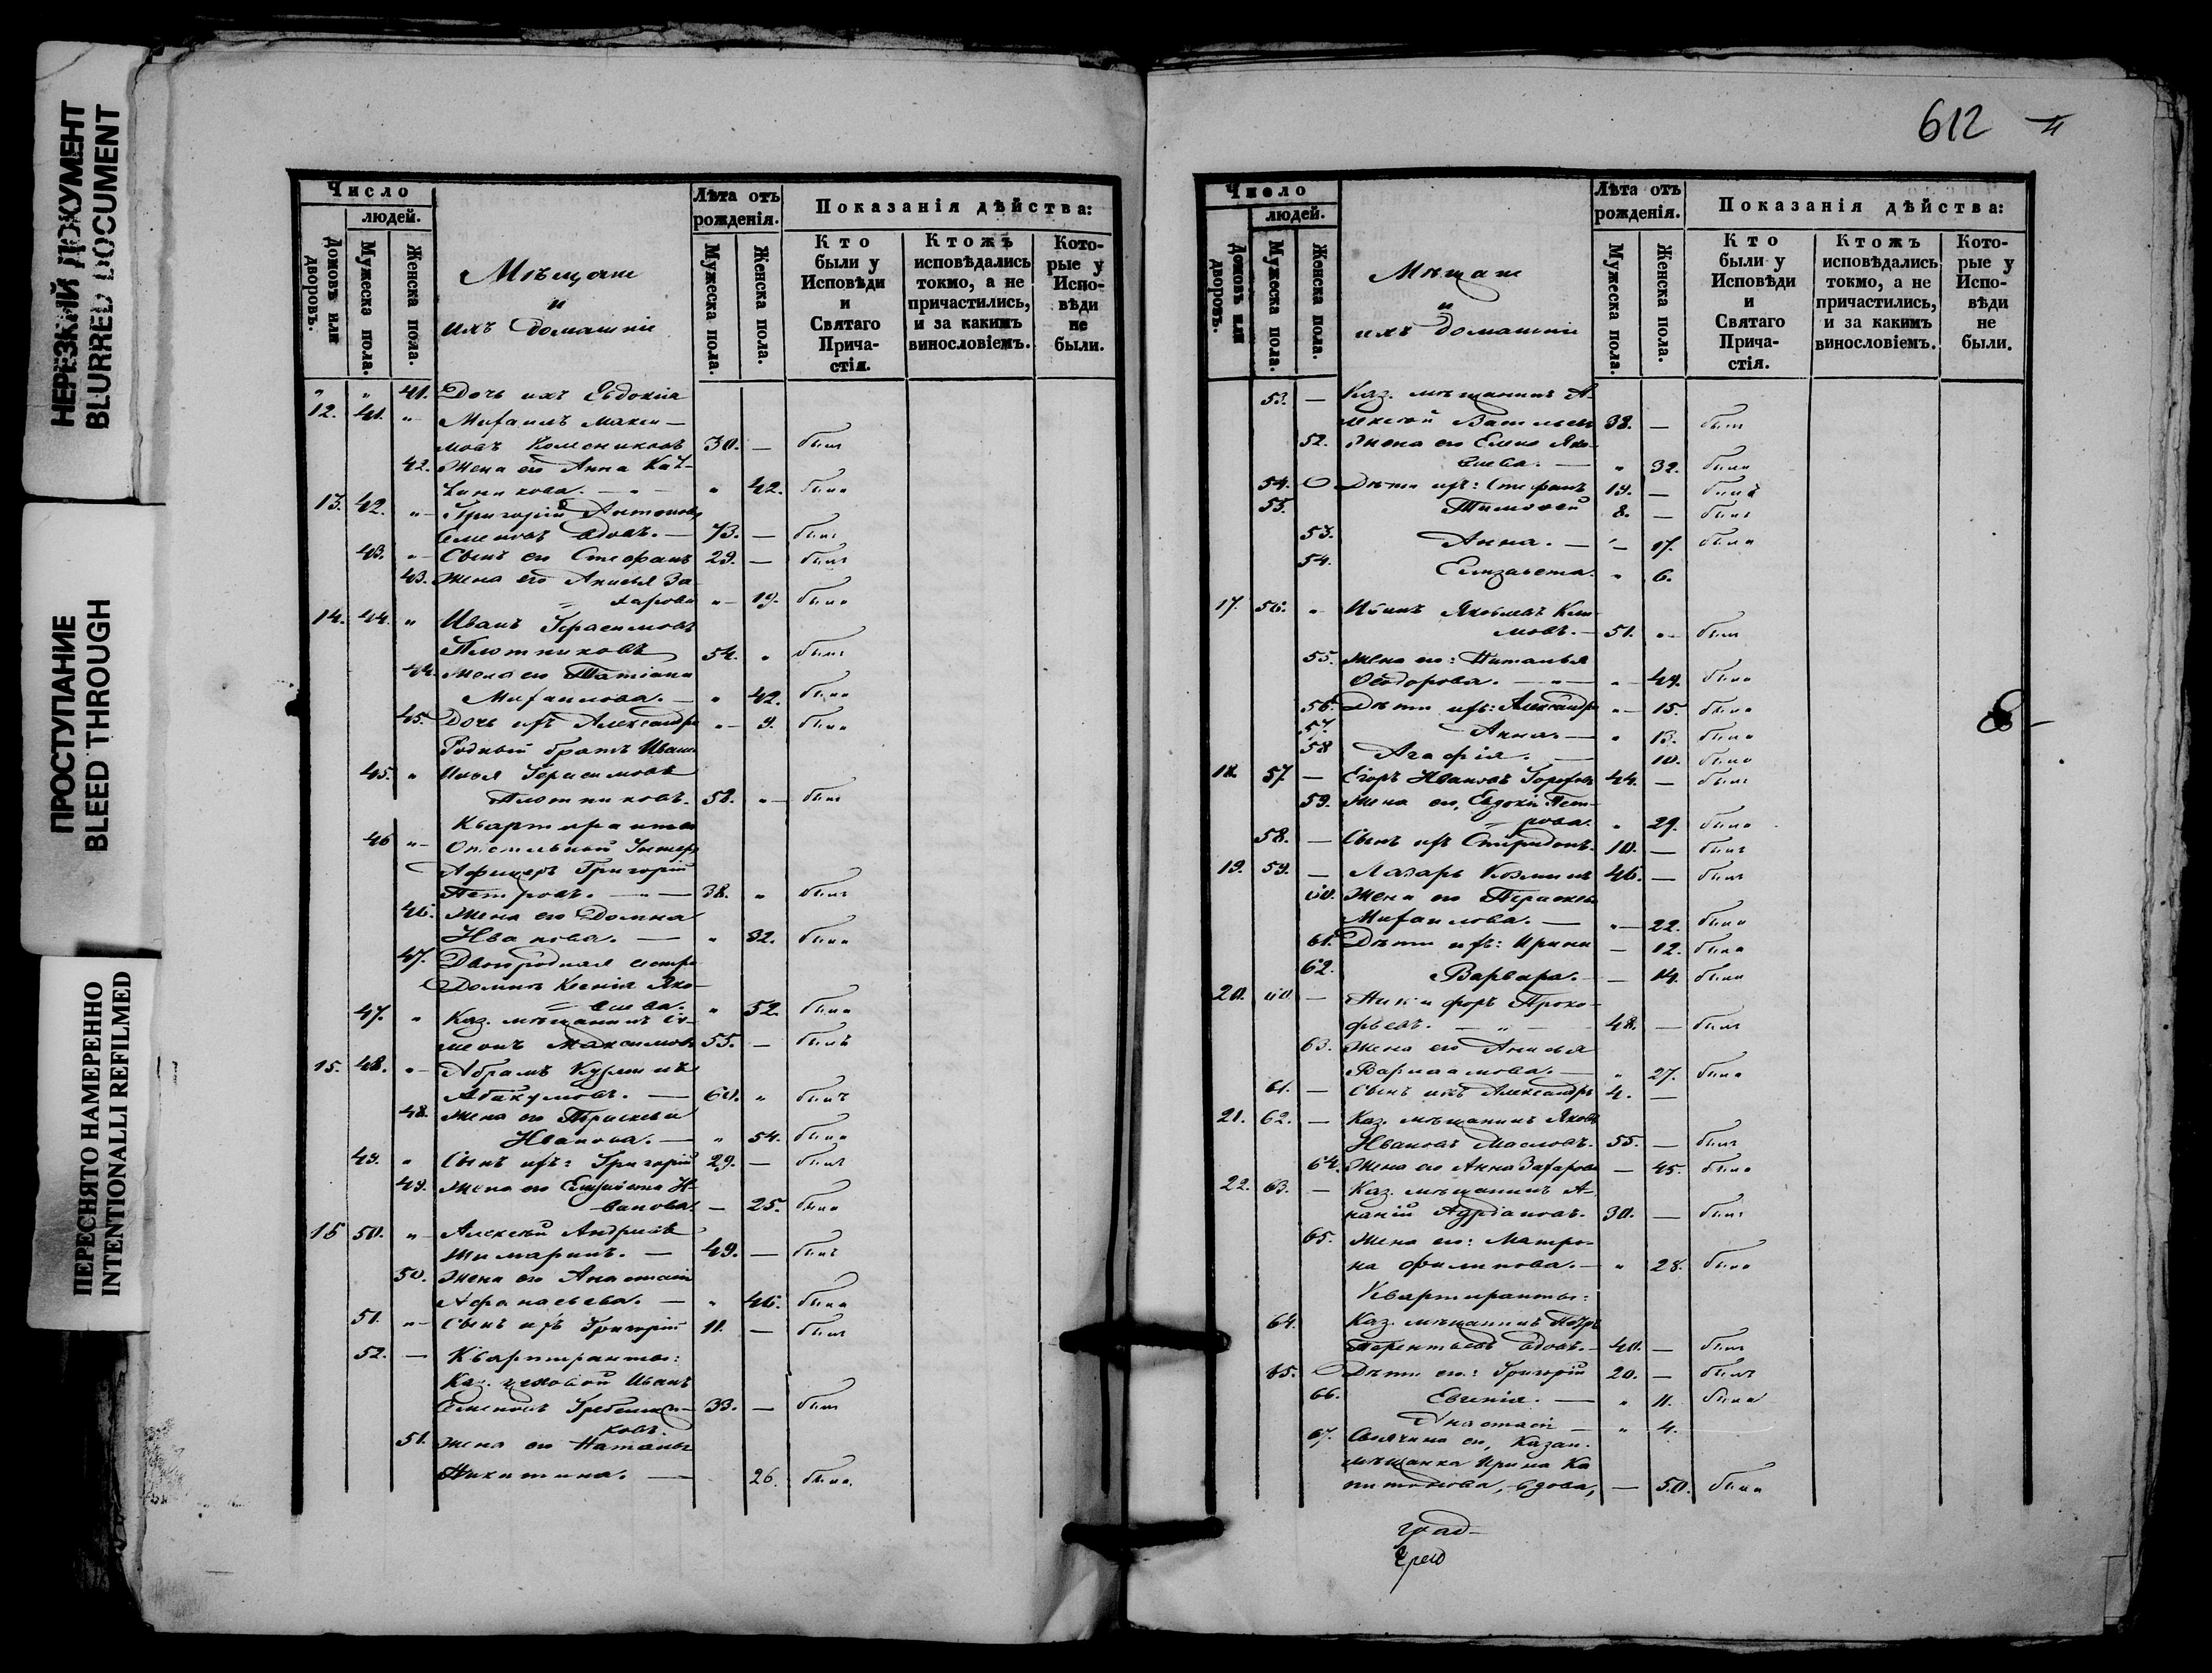 НЕРЕЗКИЙ ДОКУМЕНТ
BLURRED DOCUMENT
ПРОСТУПАНИЕ
BLEED THROUGH
ПЕРЕСНЯТО НАМЕРЕННО
INTENTIONALLI REFILMED
Число
людей.
Домовъ или дворовъ.
Мужеска пола.
Женска пола.
Мѣщане
и
ихъ домашніе
Лѣта отъ рожденія.
Мужеска пола.
Женска пола.
Показанія дѣйства:
Кто были у Исповѣди и Святаго Прича-стія.
Ктожъ исповѣдались токмо, а не причастились, и за какимъ винословіемъ.
Кото-рые у Испо-вѣди не были.
" " 41. Дочь ихъ Евдокія
12. 41. " Михаилъ Макси-
мовъ Колесниковъ 30. — былъ
42. Жена его Анна
" 42. была
13. 42. " Григорій Антоновъ
Семеновъ вдовъ. — 73. — былъ
43. " Сынъ его Стефанъ 29. — былъ
43. Жена его Анисья За-
харова " 19. была
14. 44. " Иванъ Герасимовъ
Плотниковъ 54. " былъ
44. Жена его Татіана
Михаилова. — " 42. была
45. Дочь ихъ Александра " 9. была
Родный братъ Ивана
45. " Илья Герасимовъ
Плотниковъ. 58. " былъ
Квартиранты
46 " Унтеръ
Афицеръ Григорій
Петровъ. — " — 38. " былъ
46. Жена его Домна
Иванова. — " 32. была
47. Двоюродная сестра
Домны Ксенія Яко-
влева. " 52. была
47. " Каз. мѣщанинъ Си-
меонъ Максимовъ 55. — былъ
15. 48. " Абрамъ Кузминъ
Абакумовъ. — 60. " былъ
48. Жена его Параскева
Иванова. — " 54. была
49. " Сынъ ихъ: Григорій 29. — былъ
49. Жена его Елизавета И-
ванова. — 25. была
15 50. " Алексѣй Андреевъ
49. — былъ
50. Жена его Анастасія
Афанасьева. — " 46. была
51. " Сынъ ихъ Григорій 11. — былъ
52. — Квартиранты:
Каз. цеховой Иванъ
Семеновъ Гребенщи-33. — былъ
ковъ.
51. Жена его Наталья
Никитина. — 26. была.
612
Число
людей.
Домовъ или дворовъ.
Мужеска пола.
Женска пола.
Мѣщане
и
ихъ домашніе
Лѣта отъ рожденія.
Мужеска пола.
Женска пола.
Показанія дѣйства:
Кто были у Исповѣди и Святаго Прича-стія.
Ктожъ исповѣдались токмо, а не причастились, и за какимъ винословіемъ.
Кото-рые у Испо-вѣди не были.
53. — Каз. мѣщанинъ А-
лексѣй Васильевъ 38. — былъ
52. Жена его Елена Яко-
влева. — " 32. была
54. Дѣти ихъ: Стефанъ 19. — былъ
55. Тимофей 8. — былъ
53. Анна. — " 17. была
54. Елизавета. " 6.
17. 56. " Иванъ Яковлевъ Кли-
мовъ. — 51. " былъ
55. Жена его: Наталья
Ѳеодорова. — " — " 49. была
56. Дѣти ихъ: Александра " 15. была
57. Анна. — " 13. была
58 Агафія. — 10. была
18. 57 — Егоръ Ивановъ 44. — былъ
59. Жена его, Евдокія Пет-
рова. " 29. была
58. — Сынъ ихъ Спиридонъ. 10. — былъ
19. 59. — Лазарь Козминъ 46. — былъ
60. Жена его Параскева
Михаилова. — " 22. была
61. Дѣти ихъ: Ирина — 12. была
62. Варвара. — — 14. была
20. 60 — Никифоръ Проко-
фьевъ. — " — 48. — былъ
63. Жена его Анисья
Варлаамова. — " 27. была
61. — Сынъ ихъ Александръ 4. —
21. 62. — Каз. мѣщанинъ Яковъ
Ивановъ Масловъ. 55. — былъ
64. Жена его Анна Захарова — 45. была
22. 63. — Каз. мѣщанинъ А-
наній Адріановъ. 30. — былъ
65. Жена его: Матро-
на Филипова. — " 28. была
Квартиранты:
64. Каз. мѣщанинъ Петръ
Терентьевъ вдовъ. — 40. — былъ
65. Дѣти его: Григорій 20. — былъ
66. Евгенія. — " 11. была
Анастасія — " 4.
67. его, Казан.
мѣщанка Ирина Ка
питонова, вдова, — 50. была